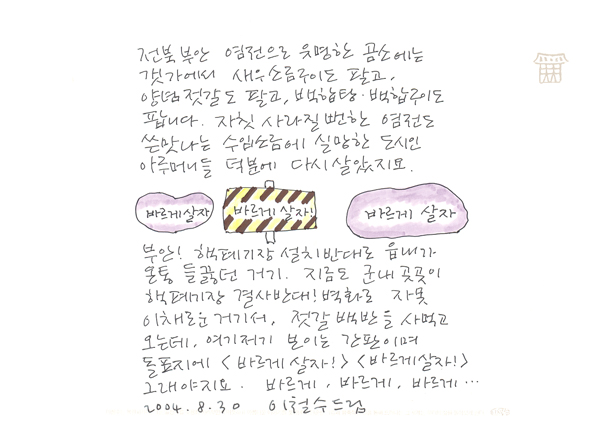 전북 부안 염전으로 유명한 곰소에는
갯가에서 새우소금구이도 팔고,
양념젓갈도 팔고, 백합탕·백합구이도
팝니다. 자칫 사라질 뻔한 염전도
쓴맛나는 수입소금에 실망한 도시인
아주머니들 덕분에 다시 살았지요.
바르게 살자 바르게 살자! 바르게 살자
부안! 핵폐기장 설치반대로 읍내가
온통 들끓던 거기. 지금도 군내 곳곳이
핵폐기장 결사반대! 벽화로 자못
이채로운 거기서, 젓갈 백반을 사먹고
오는데, 여기저기 보이는 간판이며
돌표지에 <바르게 살자!> <바르게살자!>
그래야지요. 바르게, 바르게, 바르게…
2004.8.30 이철수드림